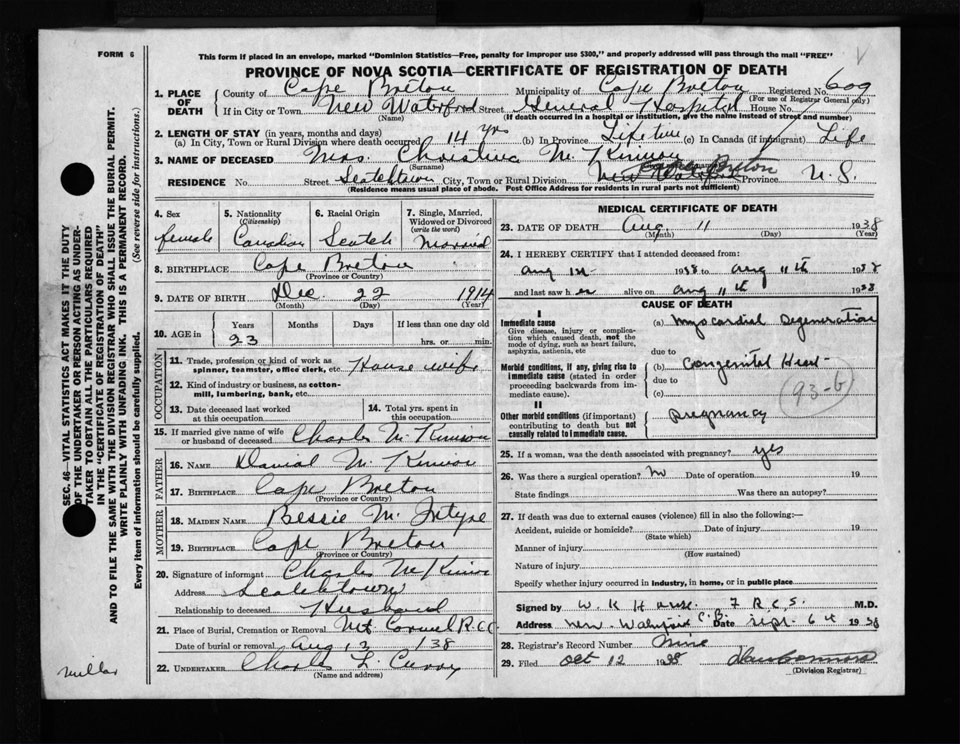 FORM 6
This form if placed in an envelope, marked "Dominion Statistics—Free, penalty for improper use $300," and properly addressed will pass through the mail "FREE"
PROVINCE OF NOVA SCOTIA—CERTIFICATE OF REGISTRATION OF DEATH
1. PLACE OF DEATH
County of Cape Breton Municipality of Cape Breton Registered No. 609
(For use of Registrar General only)
If in City or Town New Waterford Street General Hospital House No.
(Name) (If death occurred in a hospital or institution, give the name instead of street and number)
2. LENGTH OF STAY (in years, months and days)
(a) In City, Town or Rural Division where death occurred 14 yrs (b) In Province Life time (c) In Canada (if immigrant) Life
3. NAME OF DECEASED Mrs. Christina McKinnon
(Surname)
RESIDENCE No. Street Scotchtown City, Town or Rural Division New Waterford Province N.S.
(Residence means usual place of abode. Post Office Address for residents in rural parts not sufficient)
4. Sex
female
5. Nationality
(Citizenship)
Canadian
6. Racial Origin
Scotch
7. Single, Married, Widowed or Divorced
(write the word)
Married
8. BIRTHPLACE Cape Breton
(Province or Country)
9. DATE OF BIRTH Dec 22 1914
(Month) (Day) (Year)
10. AGE in
Years Months Days If less than one day old
23 hrs. or min.
OCCUPATION
11. Trade, profession or kind of work as spinner, teamster, office clerk, etc. House wife
12. Kind of industry or business, as cotton-mill, lumbering, bank, etc.
13. Date deceased last worked at this occupation
14. Total yrs. spent in this occupation
15. If married give name of wife or husband of deceased Charles McKinnon
FATHER
16. NAME Danial McKinnon
17. BIRTHPLACE Cape Breton
(Province or Country)
MOTHER
18. MAIDEN NAME Bessie McIntyre
19. BIRTHPLACE Cape Breton
(Province or Country)
20. Signature of informant Charles McKinnon
Address Scotchtown
Relationship to deceased Husband
21. Place of Burial, Cremation or Removal Mt Carmel R.C.C.
Date of burial or removal Aug 13 /38
22. UNDERTAKER Charles L. Curry
(Name and address)
MEDICAL CERTIFICATE OF DEATH
23. DATE OF DEATH Aug. 11 1938
(Month) (Day) (Year)
24. I HEREBY CERTIFY that I attended deceased from:
Aug 1st 1938 to Aug 11th 1938
and last saw her alive on Aug 11th 1938
CAUSE OF DEATH
I
Immediate cause
Give disease, injury or complication which caused death, not the mode of dying, such as heart failure, asphyxia, asthenia, etc
(a) Myocardial Degeneration
due to
Morbid conditions, if any, giving rise to immediate cause (stated in order proceeding backwards from immediate cause).
(b) Congenital Heart
due to
(c)
93-b
II
Other morbid conditions (if important) contributing to death but not causally related to immediate cause.
Pregnancy
25. If a woman, was the death associated with pregnancy? yes
26. Was there a surgical operation? No Date of operation 19
State findings Was there an autopsy?
27. If death was due to external causes (violence) fill in also the following:—
Accident, suicide or homicide? Date of injury 19
(State which)
Manner of injury
(How sustained)
Nature of injury
Specify whether injury occurred in industry, in home, or in public place
Signed by W. K. House F.R.C.S. M.D.
Address New Waterford C.B. Date Sept. 6th 1938
28. Registrar's Record Number Nine
29. Filed Oct 12 1938
(Division Registrar)
SEC. 46—VITAL STATISTICS ACT MAKES IT THE DUTY
OF THE UNDERTAKER OR PERSON ACTING AS UNDER-
TAKER TO OBTAIN ALL THE PARTICULARS REQUIRED
IN THE "CERTIFICATE OF REGISTRATION OF DEATH"
AND TO FILE THE SAME WITH THE DIVISION REGISTRAR WHO SHALL ISSUE THE BURIAL PERMIT.
WRITE PLAINLY WITH UNFADING INK. THIS IS A PERMANENT RECORD.
Every item of information should be carefully supplied. (See reverse side for instructions.)
Miller